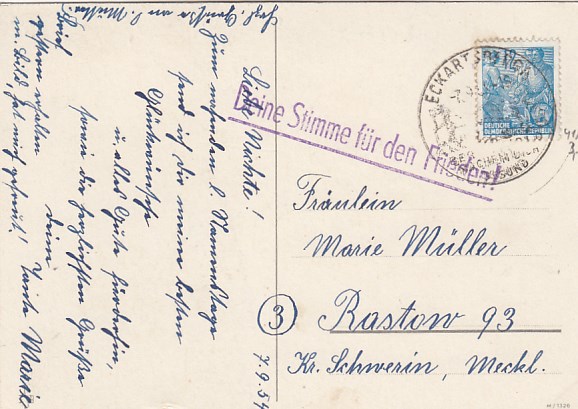 Liebe Nichte!
Zum nahenden l. Namenstage
send ich dir meine besten
Glückwünsche
u. alles Gute fürderhin,
sowie die herzlichsten Grüße
deine Tante Marie
Brief
gestern erhalten
m. Bild, hat mich gefreut!
Herzl. Grüße an l. Mutter
7.9.54
Deine Stimme für den Frieden!
ECKARTSBERGA
DEUTSCHE
DEMOKRATISCHE REPUBLIK
Fräulein
Marie Müller
3 Rastow 93
Kr. Schwerin, Meckl.